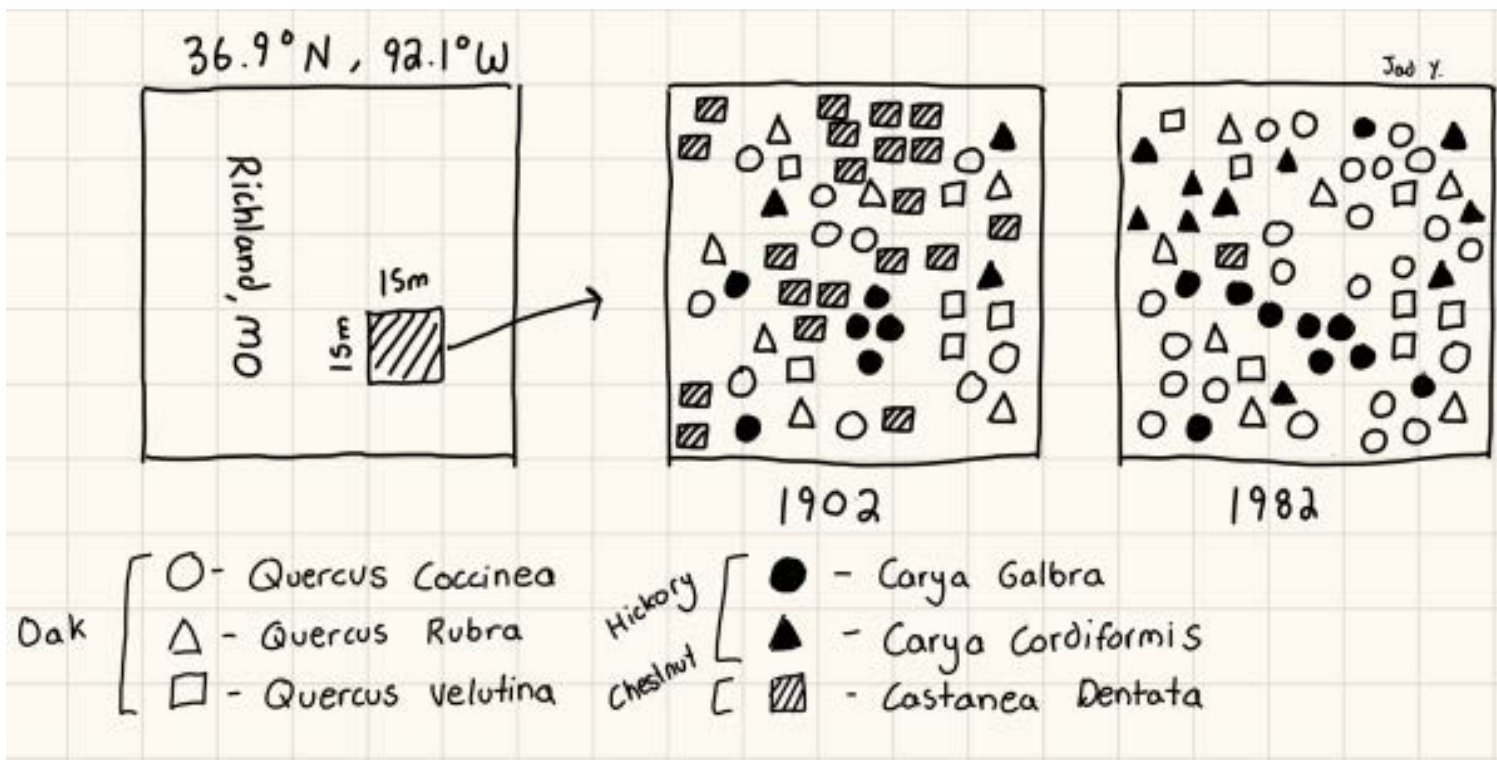 36.9°N, 92.1°W
Jad Y.
Richland, mo
15m
15m
1902
1982
Oak
O - Quercus Coccinea
△ - Quercus Rubra
□ - Quercus Velutina
Hickory
Chestnut
● - Carya Galbra
▲ - Carya Cordiformis
▨ - Castanea Dentata